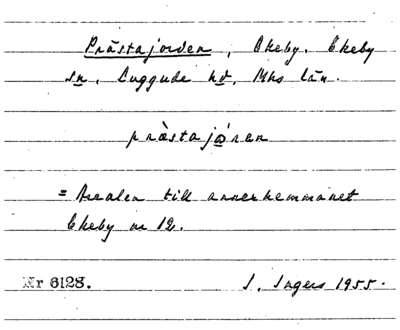 Prästajorden, Ekeby, Ekeby
sn, Luggude hd, Mhs län.
prästajo̱ren
= Arealen till annexhemmanet
Ekeby nr 12.
Nr 6128. I. Ingers 1955.